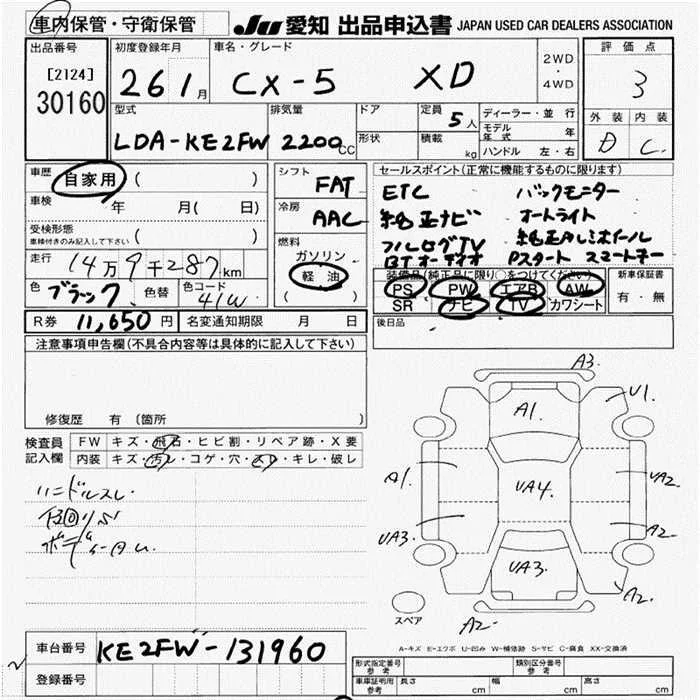 車内保管・守衛保管 JU 愛知 出品申込書 JAPAN USED CAR DEALERS ASSOCIATION
出品番号 初度登録年月 車名・グレード 2WD・4WD 評価点
[2124] 30160 26 1月 CX-5 XD 3
型式 排気量 ドア 定員 5人 ディーラー・並行 外装 内装
LDA-KE2FW 2200cc 形状 積載 kg モデル年式 年 D C
ハンドル 左・右
車歴 自家用 ( ) シフト FAT セールスポイント(正常に機能するものに限ります)
車検 年 月( 日) 冷房 AAC ETC バックモニター
受検形態 車検付きのみ記入して下さい ( ) 純正ナビ オートライト
燃料 ガソリン 軽油 ( ) フルセグTV 純正アルミホイール
走行 14万9千287km BTオーディオ Pスタート スマートキー
色 ブラック 色替 色コード 41W 装備品(純正品に限り○をつけてください) 新車保証書
PS PW エアB AW 有・無
SR ナビ TV カワシート
R券 11,650円 名変通知期限 月 日 後日品
注意事項申告欄(不具合内容等は具体的に記入して下さい)
修復歴 有 (箇所 )
検査員記入欄 FW キズ・飛石・ヒビ割・リペア跡・X要
内装 キズ・汚レ・コゲ・穴・スレ・キレ・破レ
ハンドルスレ
A3.
A1.
U1.
A1.
UA4.
UA2.
UA3.
A2.
UA3.
A2.
A2.
スペア
A-キズ E-エクボ U-凹み W-補修跡 S-サビ C-腐食 XX-交換済
車台番号 KE2FW-131960
登録番号
形式指定番号 参考 類別区分番号 参考
車車証明用 参考 長さ cm 幅 cm 高さ cm